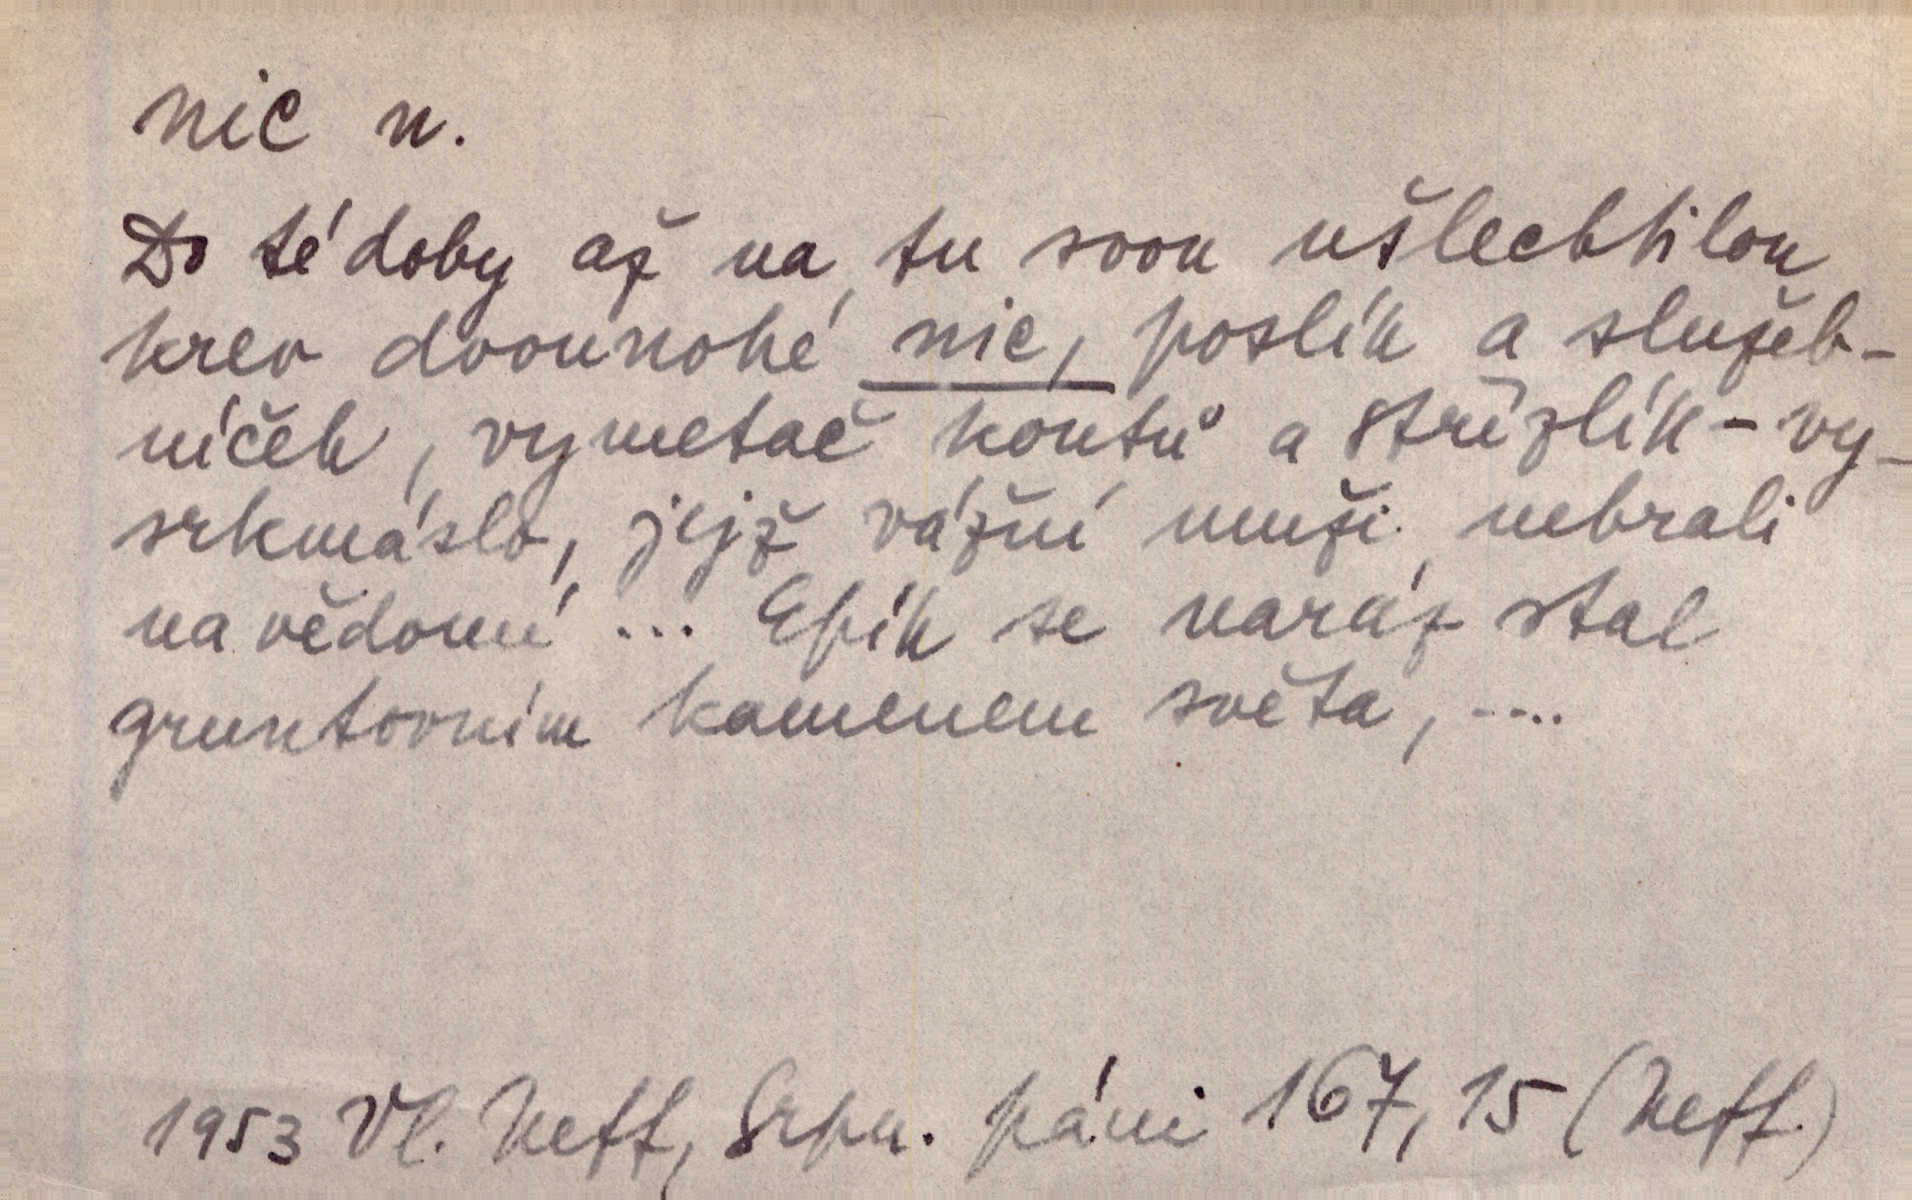 nic n.
Do té doby až na tu svou ušlechtilou
krev dvounohé nic, poslík a služeb-
níček, vymetač koutů a střízlík - vy-
srkmáslo, jejž vážní muži nebrali
na vědomí ... Epík se naráz stal
gruntovním kamenem světa, ....
1953 Vl. Neff, Srpn. páni 167, 15 (Neff.)